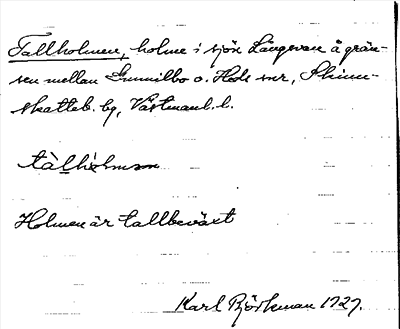 Tallholmen, holme i sjön Långsvan å grän-
sen mellan Gunnilbo o. Heds snr, Skinn-
skatteb. bg, Västmanl. l.
tàlhòlmən
Holmen är tallbeväxt
Karl Björkman 1927.